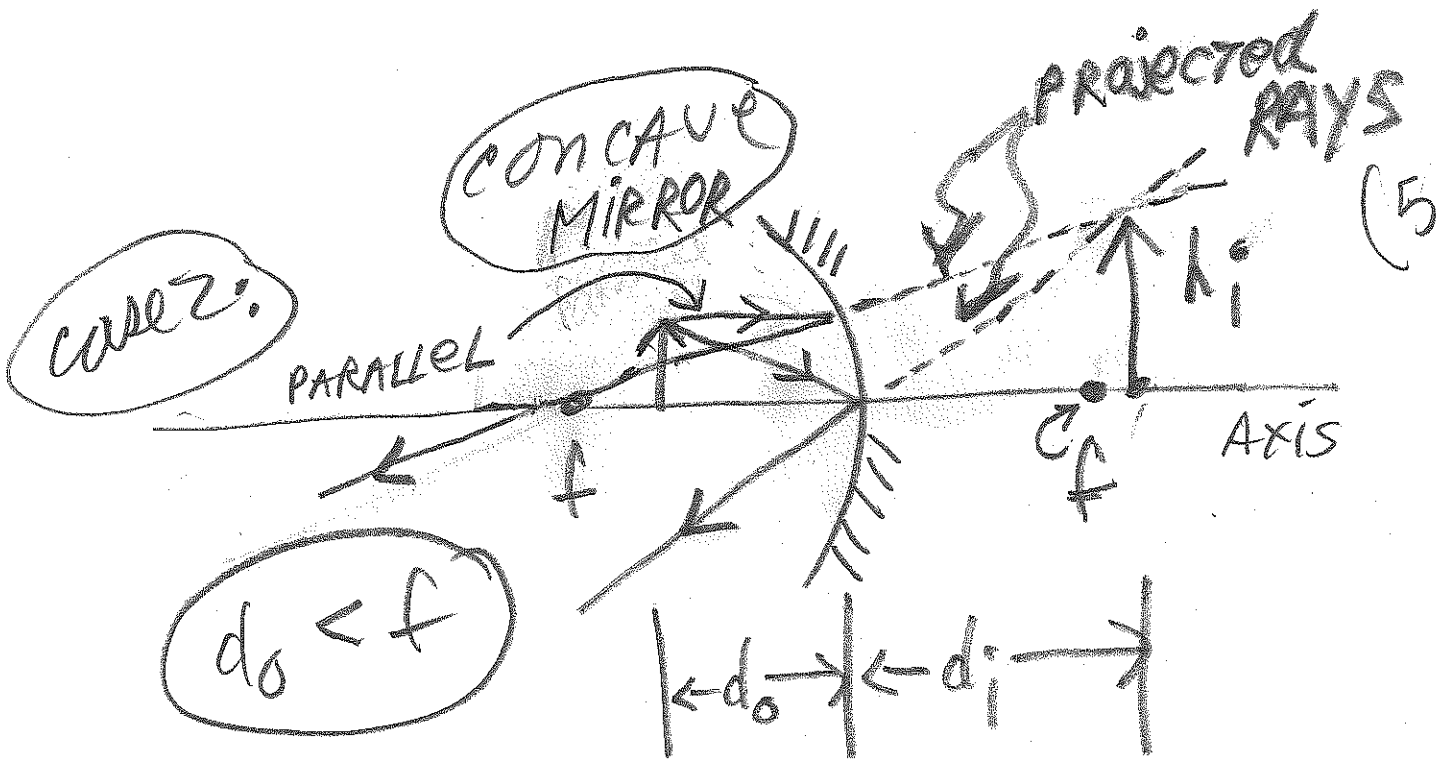 PROJECTED
RAYS
(5
CONCAVE
MIRROR
CASE 2:
PARALLEL
hi
f
f
AXIS
do < f
do
di